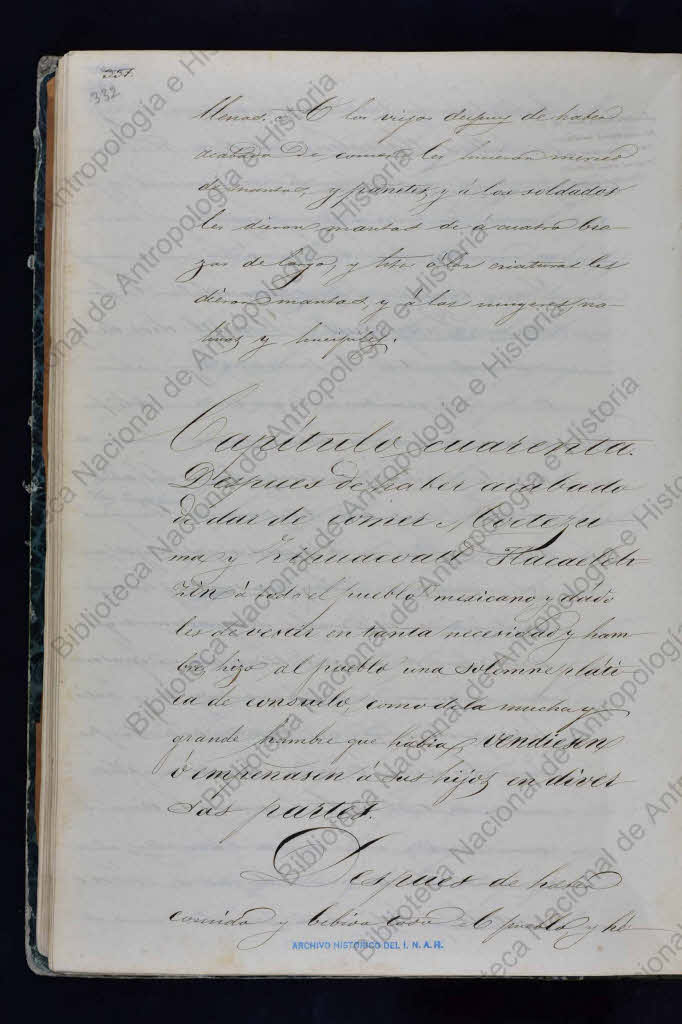 331
332
á los viejos despues de haber
acabado de comer les hicieron merced
de mantas, y pañetes, y á los soldados
les dieron mantas de á cuatro bra-
zas de largo, y todos á las criaturas les
dieron mantas, y á las mugeres na-
huas y hueipiles.
Capítulo cuarenta.
Despues de haber acabado
de dar de comer Moctezu
ma y Zihuacoatl Tlacaelel-
zin á todo el pueblo mexicano y dado
les de vestir en tanta necesidad y ham-
bre, hizo al pueblo una solemne pláti
ca de consuelo, como de la mucha y
grande hambre que habia, vendiesen
ó empeñasen á sus hijos en diver
sas partes.
Despues de haber
comido y bebido todo el pueblo y he-
ARCHIVO HISTORICO DEL I. N. A. H.
Biblioteca Nacional de Antropología e Historia